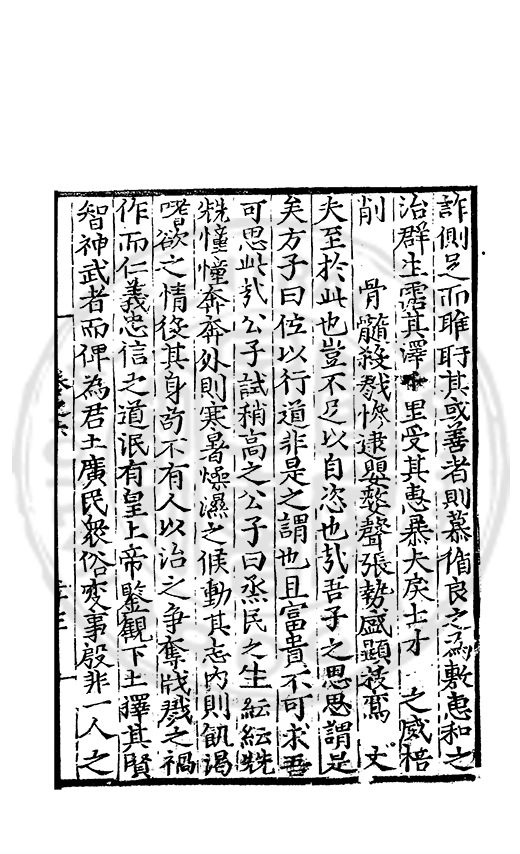 詐側足而睢盱其或善者則慕循良之為敷惠和之
治群生霑其澤里受其惠暴夫戾士才之威棓
削骨髓殺戮慘逮嬰嫠聲張勢盛顯被篤丈
夫至於此也豈不足以自恣也㢤吾子之思思謂是
矣方子曰位以行道非是之謂也且富貴不可求吾
可思此㢤公子試稍高之公子曰烝民之生紜紜兟
兟憧憧奔奔外則寒暑燥濕之候動其志內則飢渴
嗜欲之情役其身苟不有人以治之爭奪戕戮之禍
作而仁義忠信之道泯有皇上帝鑒觀下土擇其賢
智神武者而俾為君土廣民衆俗変事殷非一人之